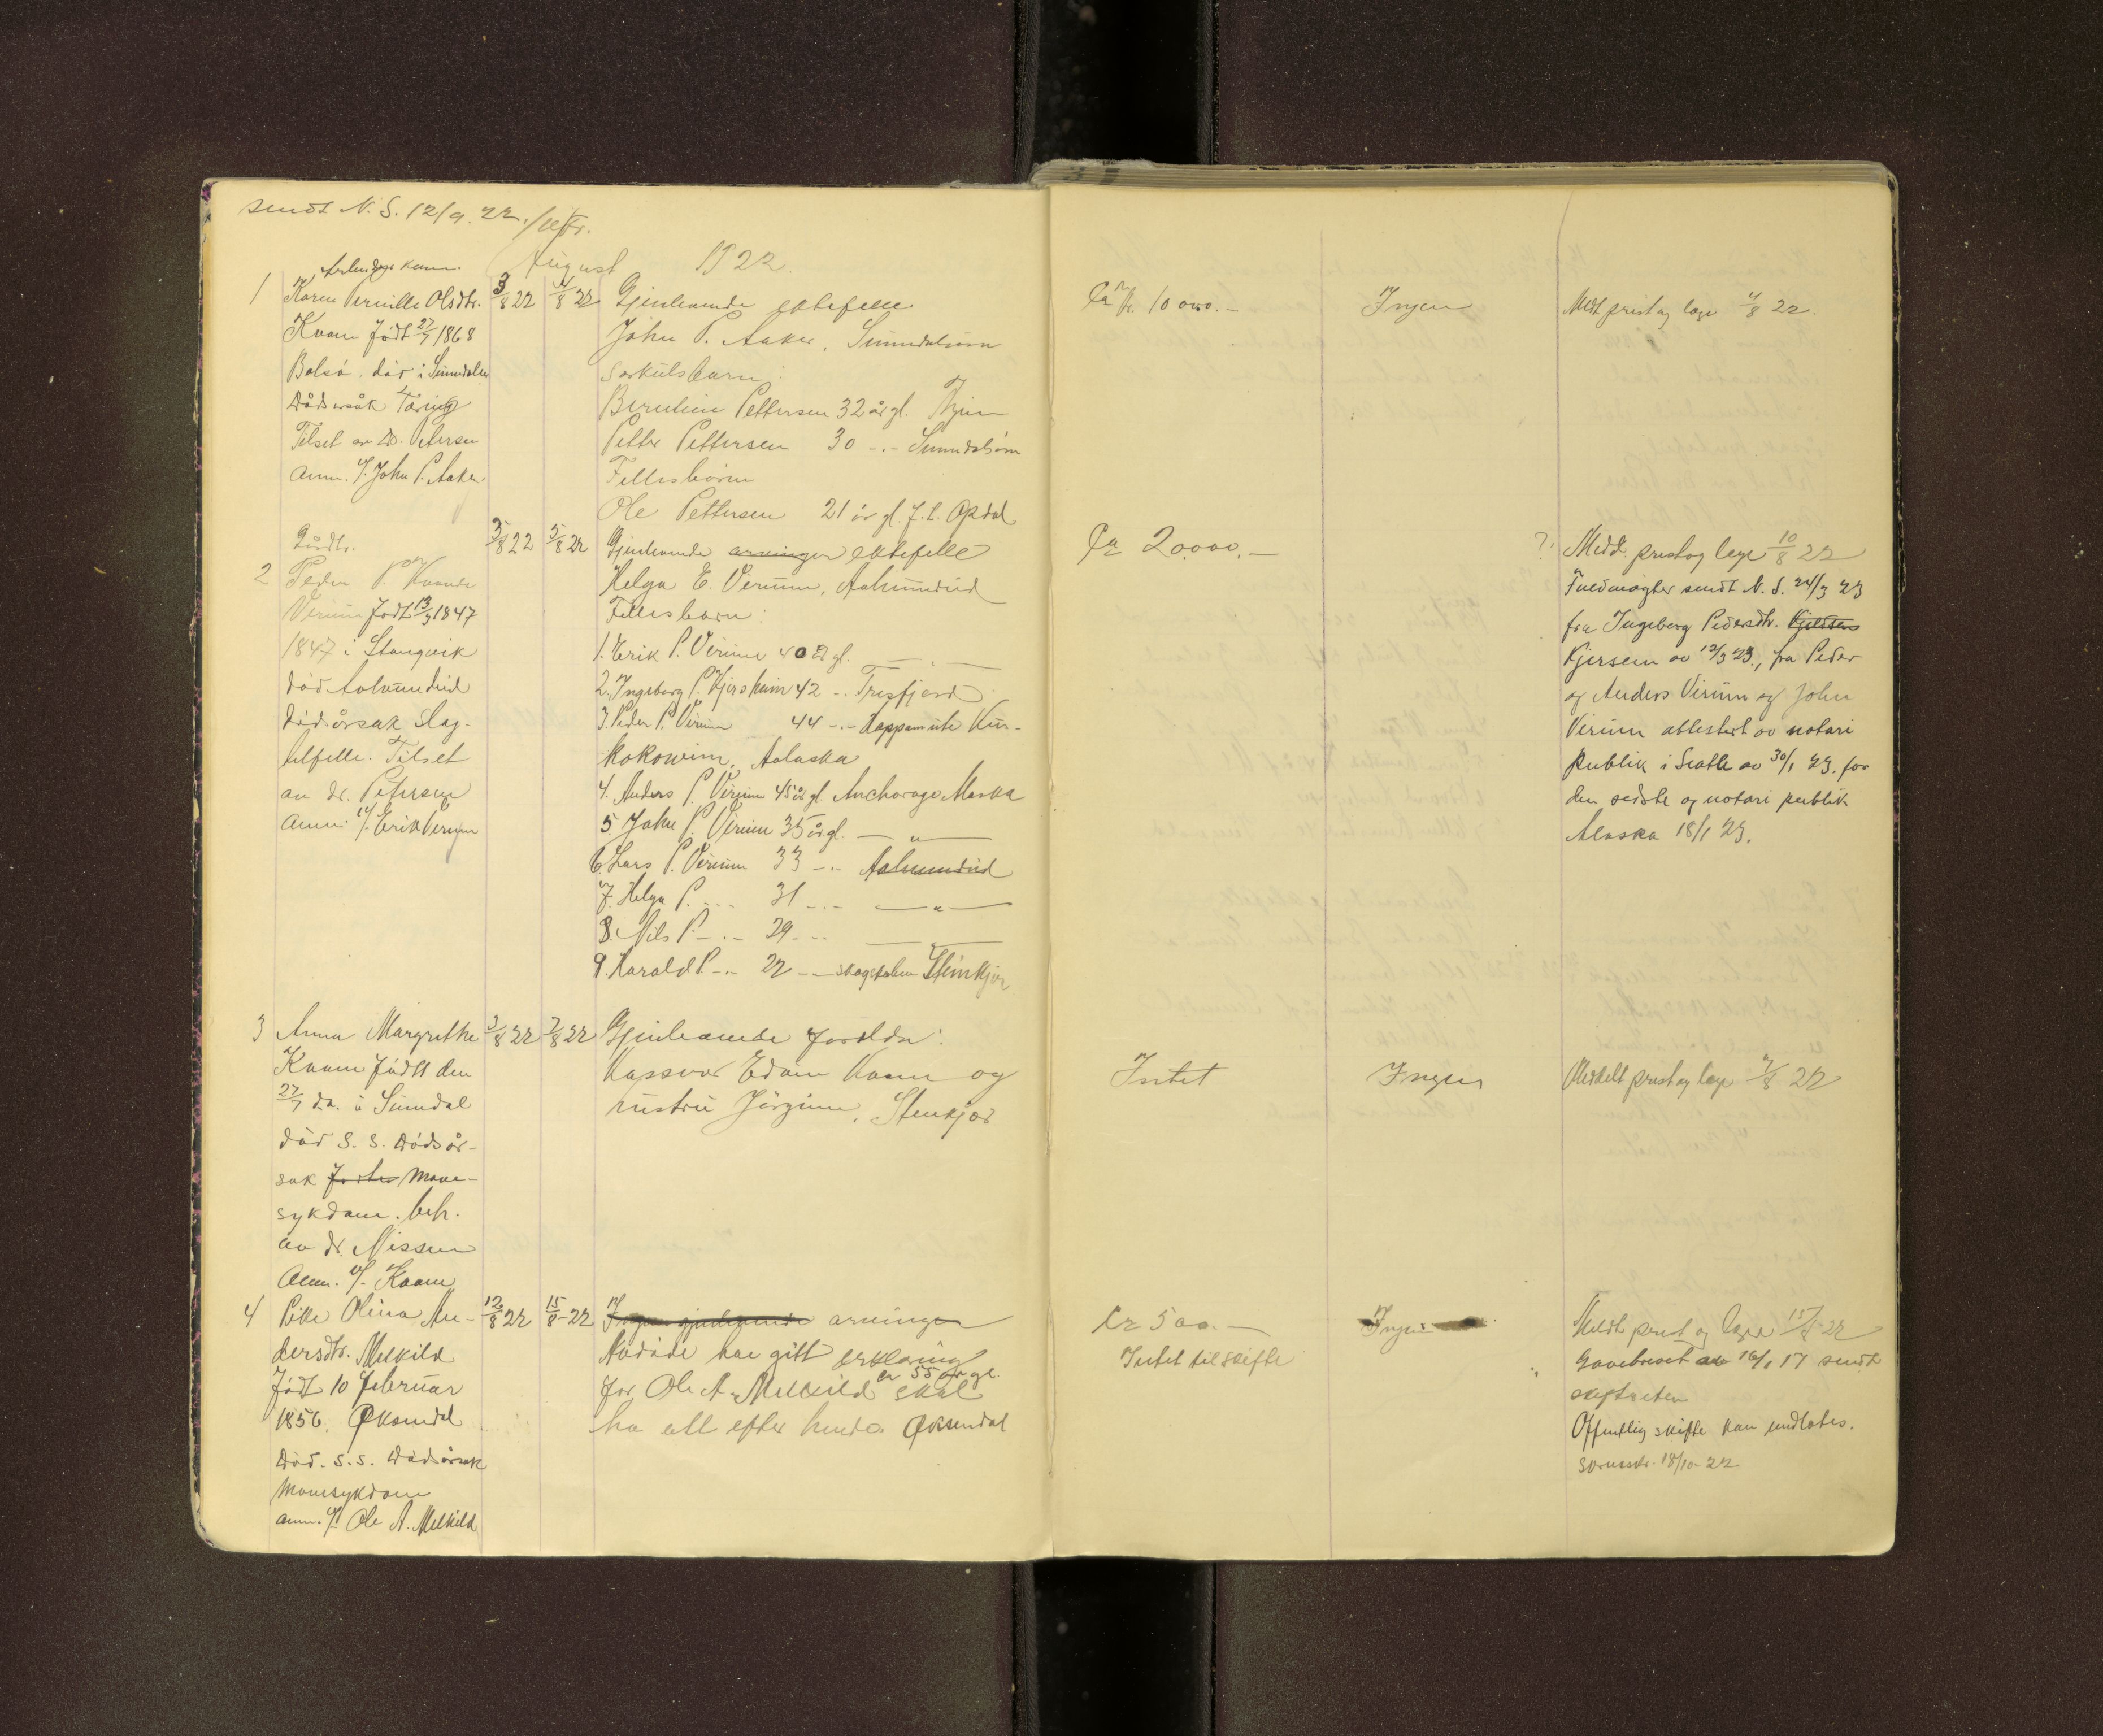 sendt N. S. 12/9. 22.
August 1922.
1 Karen Pernille Olsdtr.
Kvam født 27/7 1868
Bolsø. død i Sunndalen
Dødsårsak Tæring
Tilset av Dr. Petersen
Anm. v/ John P. Aaker.
3/8 22 4/8 22
Gjenlevende ektefelle
John P. Aaker, Sunndalsøra
Særkulsbarn:
Berntine Pettersen 32 år gl.
Petter Pettersen 30 -"- Sunndalsøra
Fellesbørn
Ole Pettersen 21 år gl. f. t. Opdal
Ca Kr. 10 000.-
Ingen
Medt prest og læge 4/8 22.
Gårdbr.
2 Peder P.
Virum født 13/3 1847
1847 i Stangvik
død Aalvundeid
Dødsårsak slag-
tilfelle. Tilset
av dr. Petersen
Anm. v/ Erik Virum
3/8 22 5/8 22
Gjenlevende arvinger ektefelle
Helga E. Virum, Aalvundeid
Fellesbarn:
1. Erik P. Virum 40 år gl. — " —
2. Ingeborg P. Kjersheim 42 -"- Tresfjord
3. Peder P. Virum 44 -"- Kus-
kokowim, Aalaska
4. Anders P. Virum 45 år gl. Anchorage Alaska
5. John P. Virum 35 år gl. — " —
6. Lars P. Virum 33 -"- Aalvundeid
7. Helga P. -"- 31 -"- — " —
8. Nils P. -"- 29 -"- — " —
9. Harald P. -"- 22 -"- skogskolen Steinkjær
Ca 20000.-
? Medd. prest og læge 10/8 22
Fuldmagter sendt N. S. 24/3 23
fra Ingeborg Pedersdtr. Kjelsen
Kjersem av 12/3 23., fra Peder
og Anders Virum og John
Virum attestert av notari
publik i Seatle av 30/1 23. for
den sidste og notari publik
Alaska 18/1 23.
3 Anna Margrethe
Kvam født den
27/7 d.a. i Sunndal
død s. s. Dødsår-
sak mave-
sykdom. beh.
av dr. Nissen
Anm. v/ Kvam
3/8 22 7/8 22
Gjenlevende foreldre:
Kasserer Edvin Kvam og
hustru Jørgine, Stenkjær
Intet
Ingen
Meddelt prest og læge 7/8 22
4 Pike Olina An-
dersdtr. Melkild
født 10 februar
1856. Øksendal
Død. s. s. Dødsårsak
Mavesykdom
anm. v/ Ole A. Melkild
12/8 22 15/8 22
Ingen gjenlevende arvinger
Avdøde har gitt erklæring
ca 55 år gl.
for Ole A. Melkild skal
ha alt efter hende. Øksendal
Ca 500.-
Intet til skifte
Ingen
Meldt prest og læge 15/8 22
Gavebrevet av 16/1 17 sendt
skifteretten
Offentlig skifte kan undlates.
Sorensskr. 18/10 22